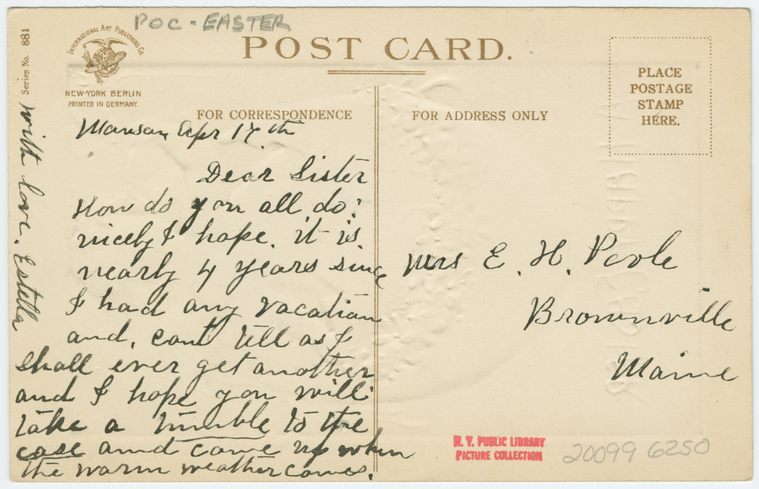 POC-EASTER
INTERNATIONAL ART PUBLISHING Co.
NEW-YORK BERLIN
PRINTED IN GERMANY.
Series No. 881
POST CARD.
PLACE
POSTAGE
STAMP
HERE.
FOR CORRESPONDENCE
FOR ADDRESS ONLY
Apr 17th
Dear Sister
How do you all do?
nicely I hope. it is
nearly 4 years since
I had any vacation
and, cant tell as I
shall ever get another
and I hope you will
take a tumble to the
case and come up when
the warm weather comes.
with love. Estella
Mrs E. H. Poole
Brownville
Maine
N. Y. PUBLIC LIBRARY
PICTURE COLLECTION
20099 6250